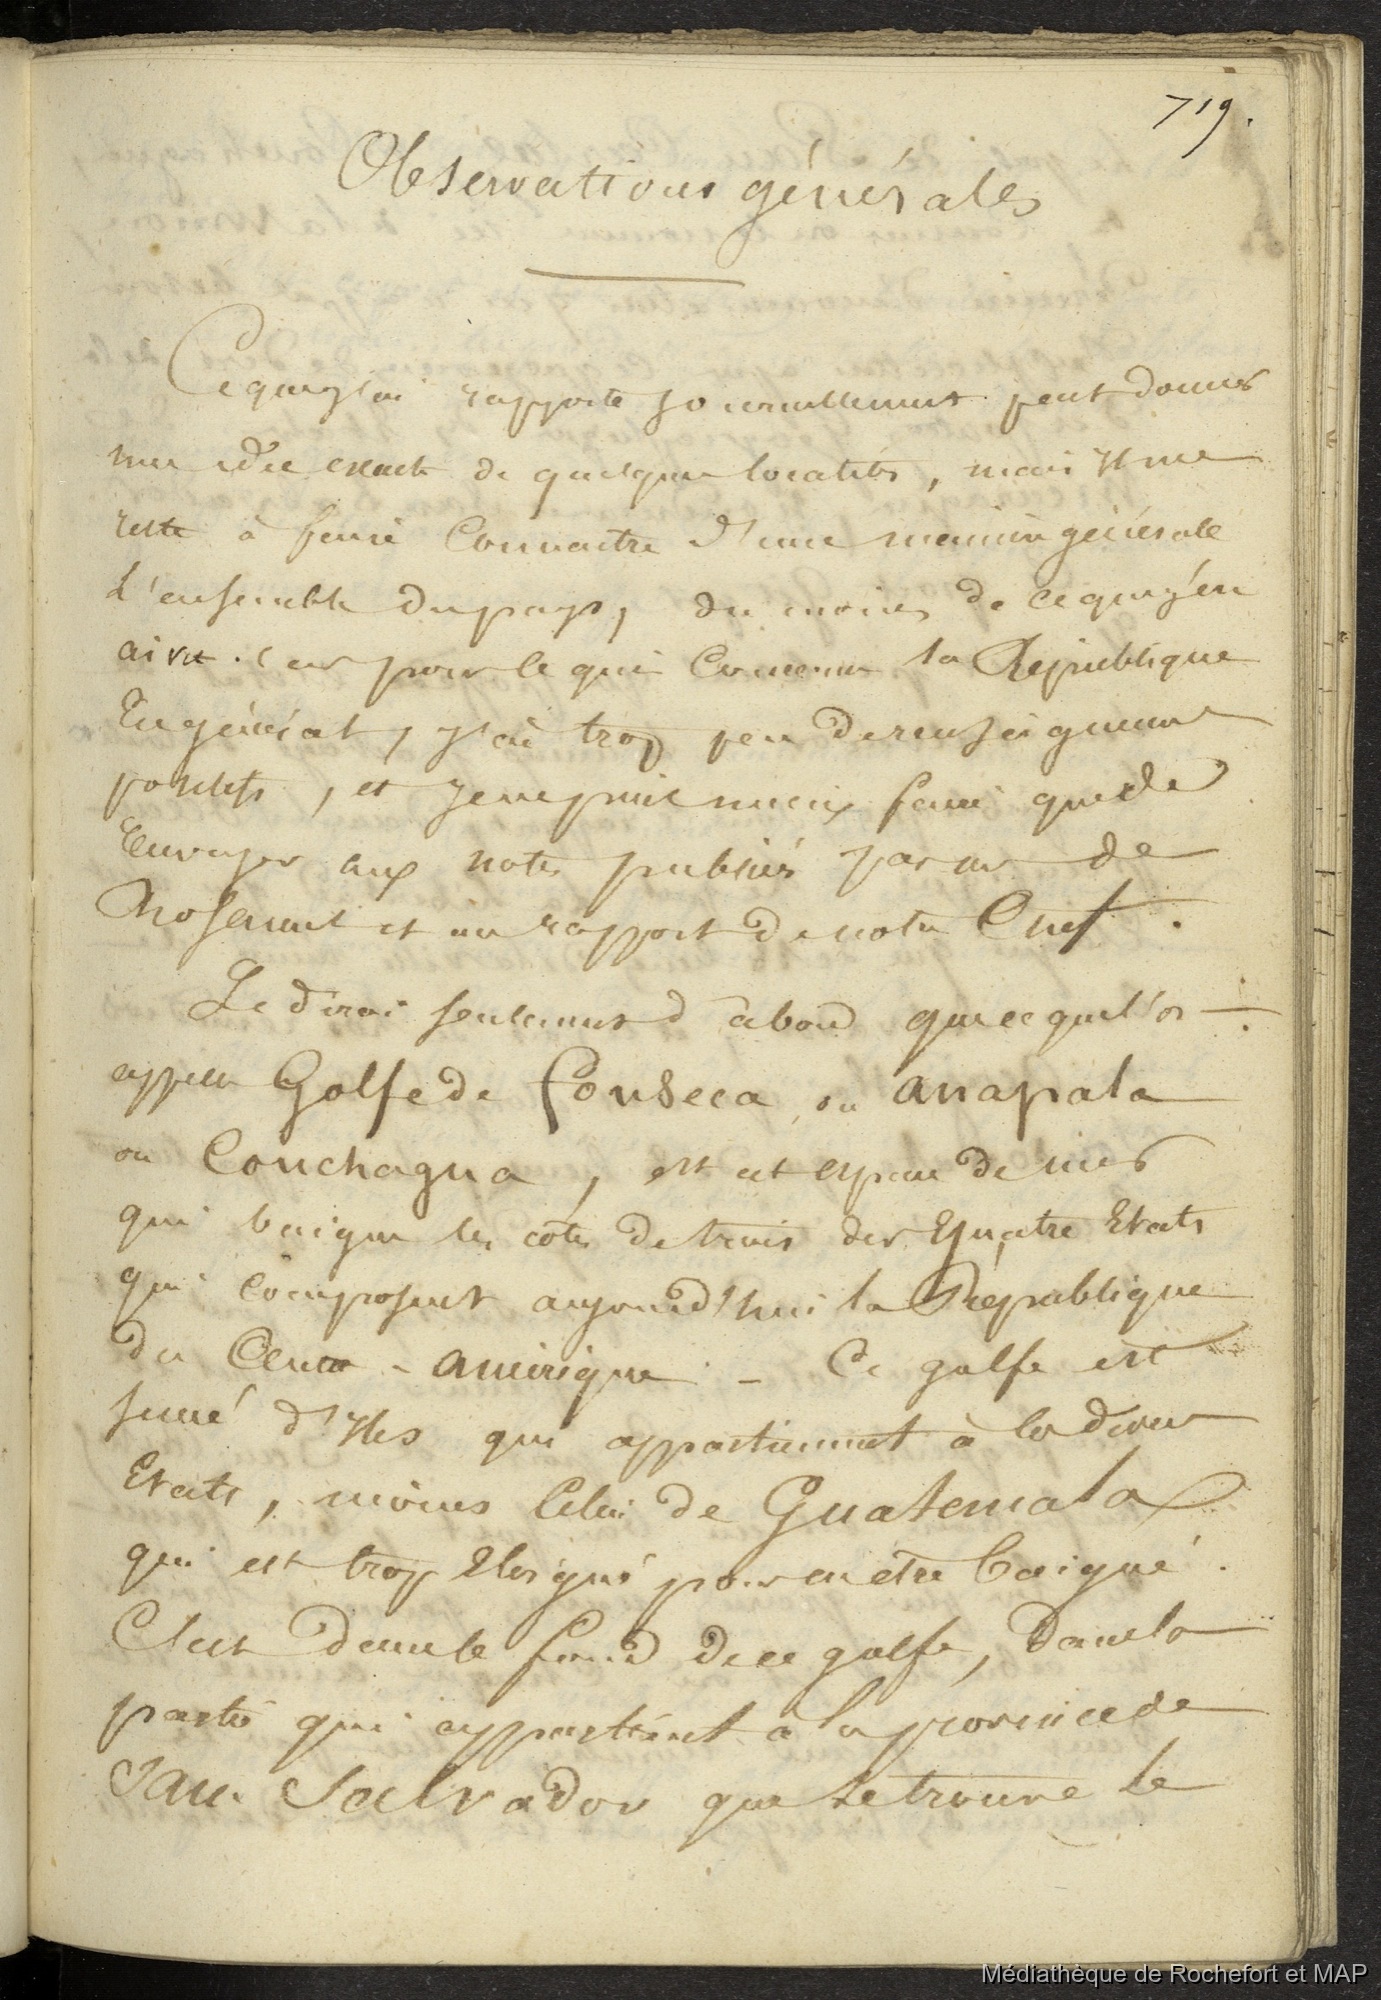 719.
Observations générales
Ce que j'ai rapporté journellement peut donner
une idée exacte de quelques localités, mais il me
reste à faire connaitre d'une manière générale
l'ensemble du pays, du moins de ce que j'en
ai vu. Car pour ce qui concerne la République
en général, j'ai trop peu de renseignements
positifs, et je ne puis mieux faire que de
renvoyer aux notes publiées par mr de
Rosamel et au rapport de notre Chef.
Je dirai seulement d'abord que ce que l'on
appelle Golfe de Fonseca, ou anapala
ou Conchagua, est cet espace de mer
qui baigne les côtes de trois des quatre Etats
qui composent aujourd'hui la République
du Centre-amérique. - Ce golfe est
semé d'Iles qui appartiennent à les divers
Etats, moins celui de Guatemala
qui est trop eloigné pour en être baigné.
C'est dans le fond de ce golfe, dans la
partie qui appartient à la province de
San Salvador que se trouve le
Médiathèque de Rochefort et MAP